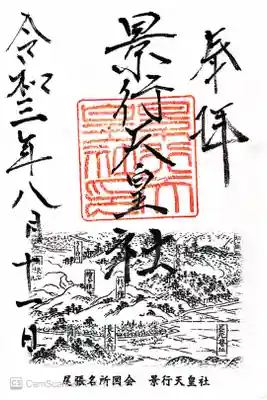 奉拝
景行天皇社
令和三年八月十一日
尾張名所図会　景行天皇社
CS CamScanner